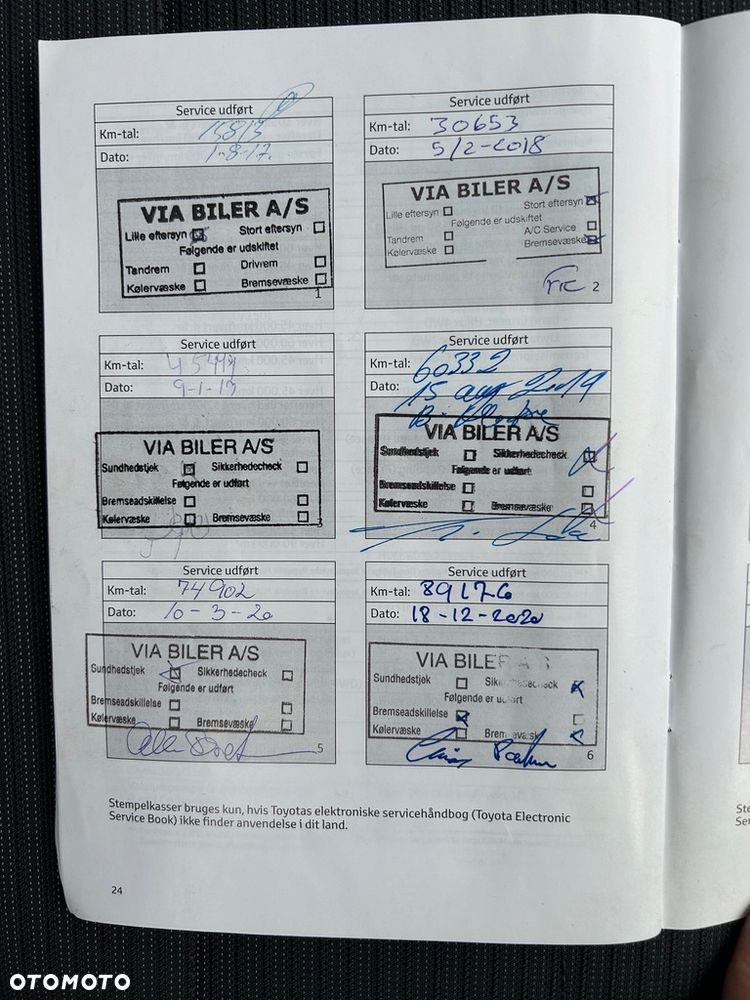 Service udført
Km-tal: 15813
Dato: 1-8-17.
VIA BILER A/S
Lille eftersyn Stort eftersyn
Følgende er udskiftet
Tandrem Drivrem
Kølervæske Bremsevæske
1
Service udført
Km-tal: 30653
Dato: 5/2-2018
VIA BILER A/S
Lille eftersyn Stort eftersyn
Følgende er udskiftet
Tandrem A/C Service
Kølervæske Bremsevæske
2
Service udført
Km-tal:
Dato: 9-1-19
VIA BILER A/S
Sundhedstjek Sikkerhedscheck
Følgende er udført
Bremseadskillelse
Kølervæske Bremsevæske
3
Service udført
Km-tal: 60332
Dato: 15 aug 2019
VIA BILER A/S
Sundhedstjek Sikkerhedscheck
Følgende er udført
Bremseadskillelse
Kølervæske Bremsevæske
4
Service udført
Km-tal: 74902
Dato: 10-3-20
VIA BILER A/S
Sundhedstjek Sikkerhedscheck
Følgende er udført
Bremseadskillelse
Kølervæske Bremsevæske
5
Service udført
Km-tal: 89176
Dato: 18-12-2020
VIA BILER A/S
Sundhedstjek Sikkerhedscheck
Følgende er udført
Bremseadskillelse
Kølervæske Bremsevæske
6
Stempelkasser bruges kun, hvis Toyotas elektroniske servicehåndbog (Toyota Electronic
Service Book) ikke finder anvendelse i dit land.
24
OTOMOTO